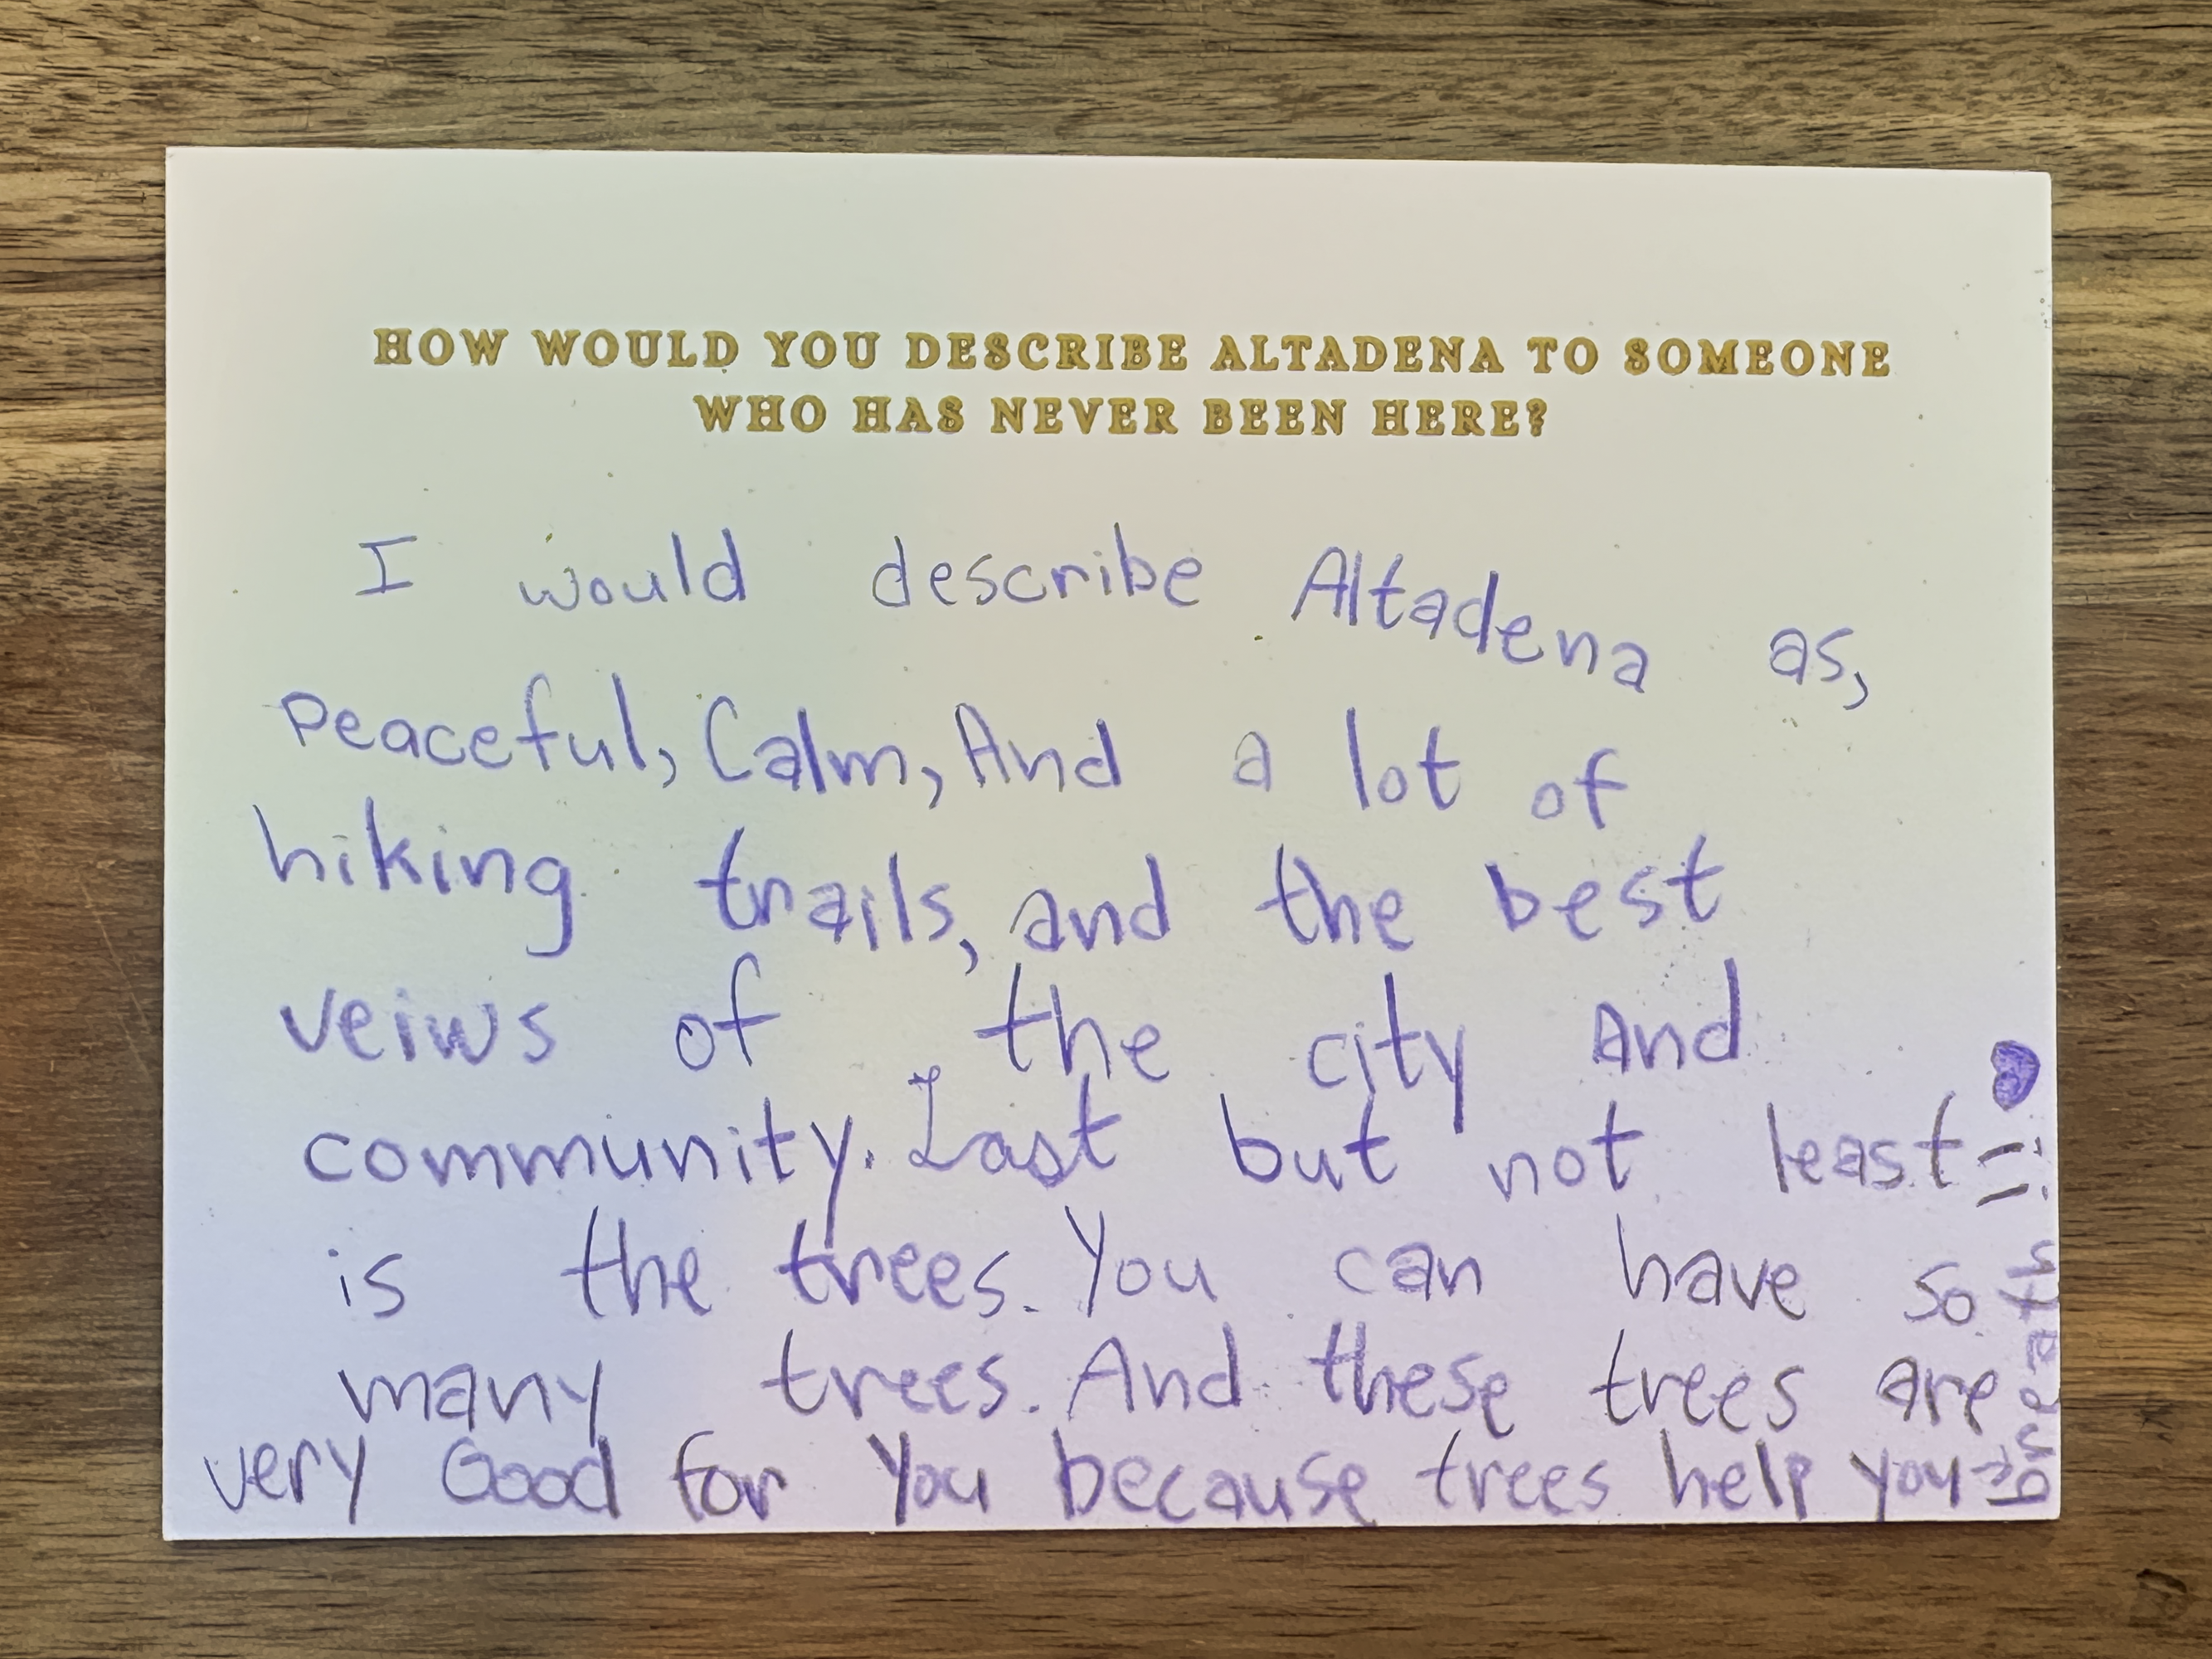 HOW WOULD YOU DESCRIBE ALTADENA TO SOMEONE
WHO HAS NEVER BEEN HERE?
I would describe Altadena as,
Peaceful, Calm, And a lot of
hiking trails, and the best
veiws of the city And
community. Last but not least
is the trees. You can have so
many trees. And these trees are
very Good for You because trees help you→
breath